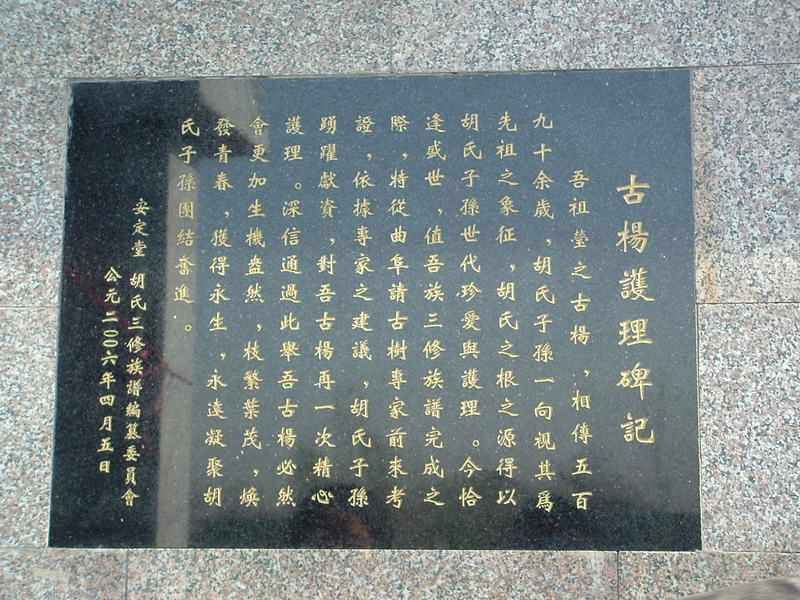 古楊護理碑記
吾祖瑩之古楊，相傳五百
九十余歲，胡氏子孫一向視其爲
先祖之象征，胡氏之根之源得以
胡氏子孫世代珍愛與護理。今恰
逢盛世，值吾族三修族譜完成之
際，特從曲阜請古樹專家前來考
證，依據專家之建議，胡氏子孫
踴躍獻資，對吾古楊再一次精心
護理。深信通過此舉吾古楊必然
會更加生機盎然，枝繁葉茂，煥
發青春，獲得永生，永遠凝聚胡
氏子孫團結奮進。
安定堂 胡氏三修族譜編纂委員會
公元二〇〇六年四月五日